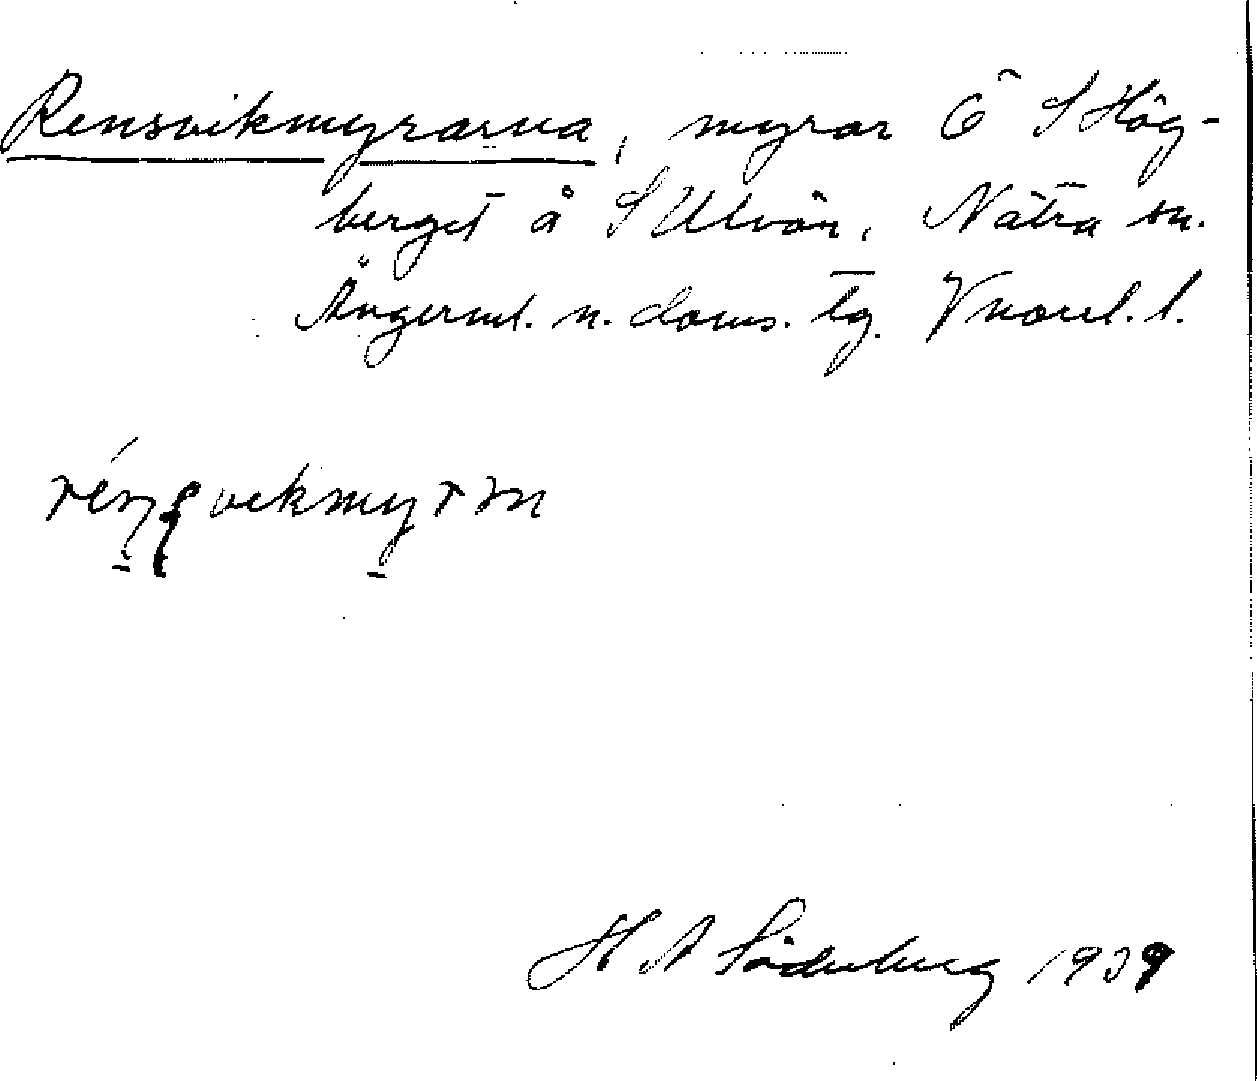 Rensvikmyrarna, myrar Ö S Hög-
berget å S Ulvön, Nätra sn.
Ångerml. n. doms. tg. Vnorrl. l.
H A Söderberg 1939